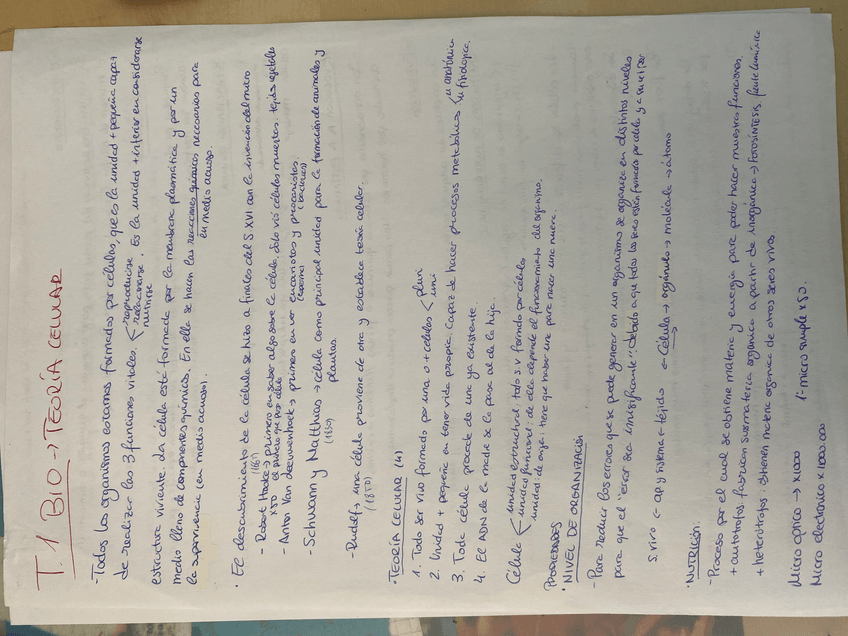 T.1 BIO → TEORÍA CELULAR
- Todos los organismos estamos formados por células, que es la unidad + pequeña capaz
de realizar las 3 funciones vitales. < reproducirse
relacionarse
nutrirse
. Es la unidad + inferior en considerarse
estructura viviente. La célula está formada por la membrana plasmática y por un
medio lleno de componentes químicos. En ella se hacen las reacciones químicas necesarias para
la supervivencia (en medio acuoso).
en medio acuoso.
• El descubrimiento de la célula se hizo a finales del S XVI con la invención del micro
(1665)
- Robert Hooke → primero en saber algo sobre la célula. Sólo vió células muertas. tejidos vegetales
x50
- Anton Van Leeuwenhoek → primero en ver eucariotas y procariotas
(bacterias)
- Schwann y Matthias → célula como principal unidad para la formación de animales y
(1839)
plantas.
- Rudolfs una célula proviene de otra y establece teoría celular.
(1850)
• TEORÍA CELULAR (4)
1. Todo ser vivo formado por una o + células < pluri
uni
2. Unidad + pequeña en tener vida propia. Capaz de hacer procesos metabólicos < u anatómica
u fisiológica.
3. Toda célula procede de una ya existente.
4. El ADN de la madre se lo pasa al de la hija.
Célula < unidad estructural: todo s.v formado por células
unidad funcional: de ella depende el funcionamiento del organismo.
unidad: de origen: tiene que haber una para nacer una nueva.
PROPIEDADES
• NIVEL DE ORGANIZACIÓN
- Para reducir los errores que se puede generar en un organismo se organiza en distintos niveles
para que el "error sea insignificante". Debido a que todos los seres están formados por célula y a su vez por
s. vivo ← ap y sistema ← tejido ← Célula → orgánulo → molécula → átomo
• NUTRICIÓN:
- Proceso por el cual se obtiene materia y energía para poder hacer nuestras funciones.
+ autótrofos: fabrican su materia orgánica a partir de inorgánica → FOTOSÍNTESIS. fuente lumínica
+ heterótrofos: obtienen materia orgánica de otros seres vivos.
Micro óptico → x1000
1º micro simple x50.
Micro electrónico x 1000 000